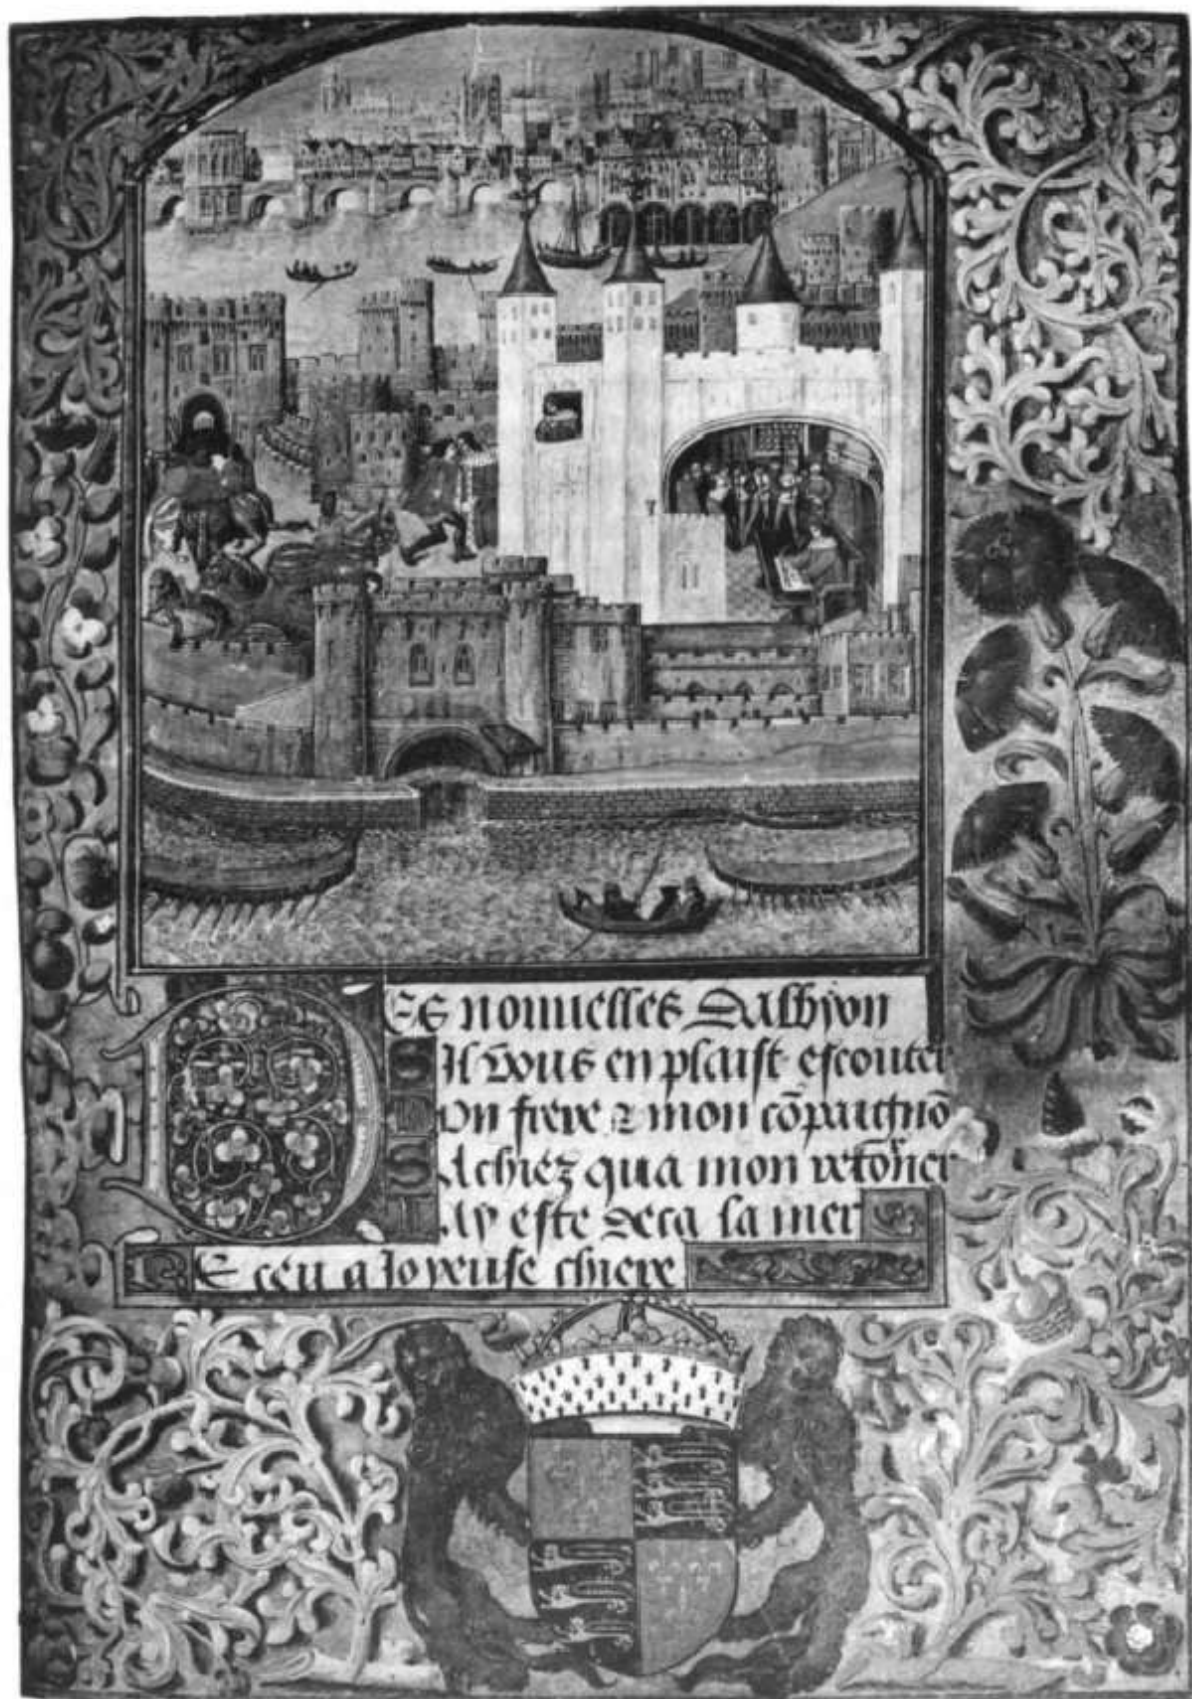 Des nouuelles Dalbyon
Sil vous en plaist escouter
Mon frere & mon cõpaignõ
Sachiez qua mon retor̃ner
Jay este deca la mer
Receu a Joyeuse chiere